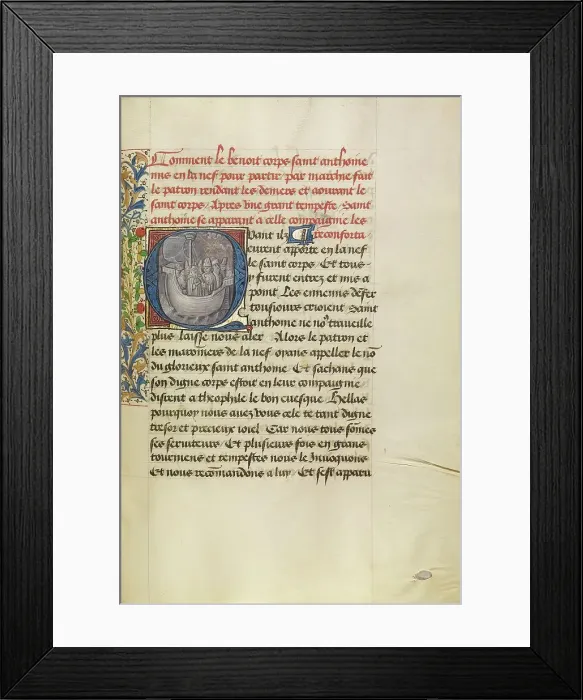 Comment le benoit corps saint anthoine
mis en la nef pour partir par marchie fait
le patron rendant les deniers et aourant le
saint corps. Apres une grant tempeste. Saint
anthoine se apparant a celle compaignie les
reconforta
Quant ilz
eurent apporte en la nef
le saint corps. Et tous
y furent entrez et mis a
point. Les ennemis
tousiours crioient Saint
anthoine ne no9 traveille
plus laisse nous aler. Alors le patron et
les maronniers de la nef oyans appeller le nō
du glorieux saint anthoine. Et sachans que
son digne corps estoit en leur compaignie
disrent a theophile le bon evesque. Hellas
pourquoy nous avez vous cele te tant digne
tresor et precieux ioiel. Car nous tous sōmes
ses serviteurs. Et plusieurs fois en grans
tourmens et tempestes nous le Invoquons
Et nous recōmandons a luy. Et sest apparu